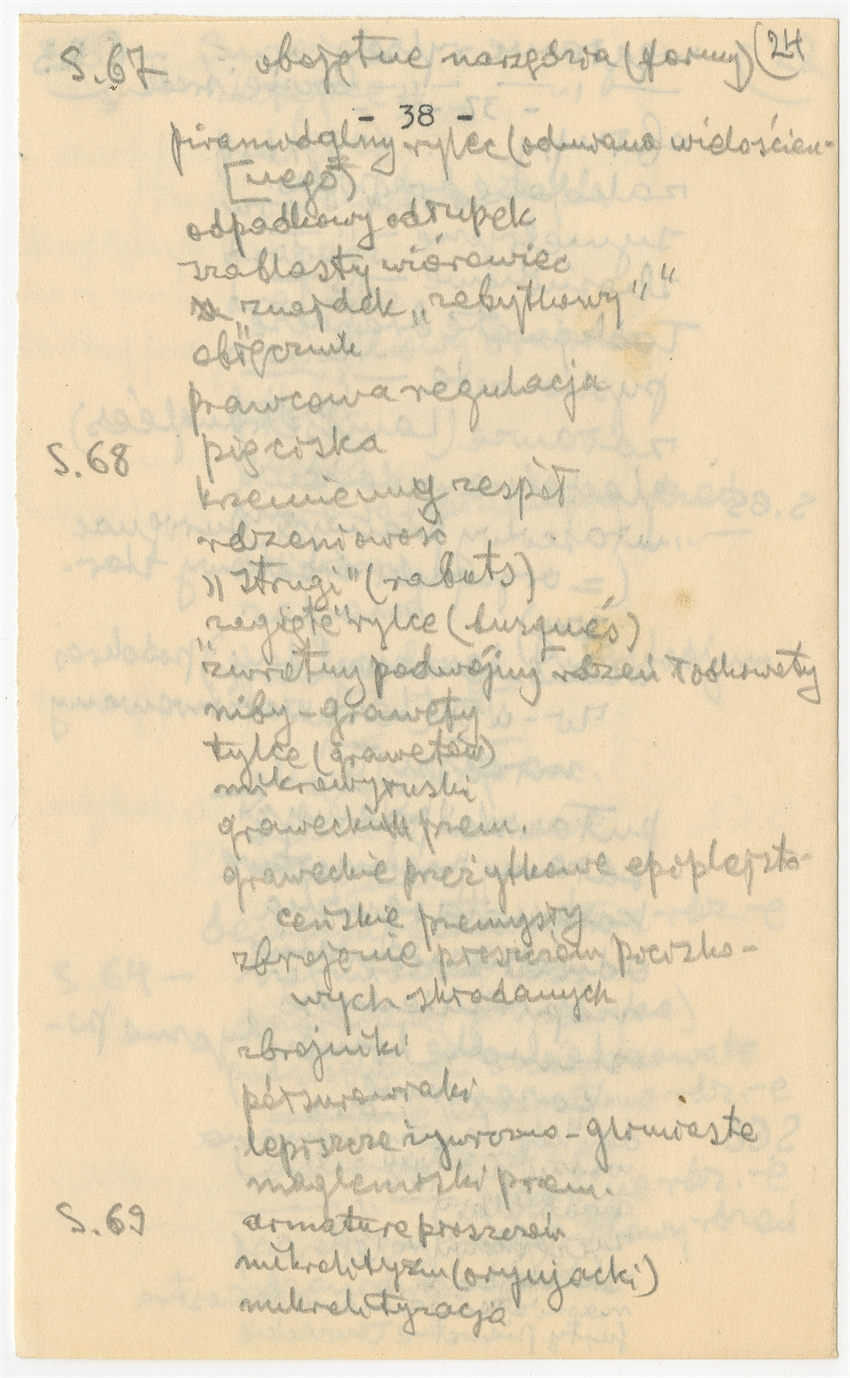 S. 67 obojętne narzędzia (formy) (24
- 38 -
piramidalny rylec (odmiana wielościen-
[nego)
odpadkowy odłupek
szablasty wiórowiec
znajdek „zabytkowy”
obłęcznik
prawcowa regulacja
S. 68 pięciska
krzemienny zespół
rdzeniowość
„strugi” (rabots)
„zagięte” rylce (busqués)
zwrotny podwójny rdzeń łódkowaty
niby-grawety
tylce (grawetów)
mikrowyruski
grawecki przem.
graweckie przeżytkowe epiplejsto-
ceńskie przemysły
zbrojenie proszczem pocisko-
wych składanych
zbrojniki
półsurowiaki
lepiszcze żywiczno-gliniaste
maglemoski przem.
S. 69 armatura proszczów
mikrolityzm (oryniacki)
mikrolityzacja